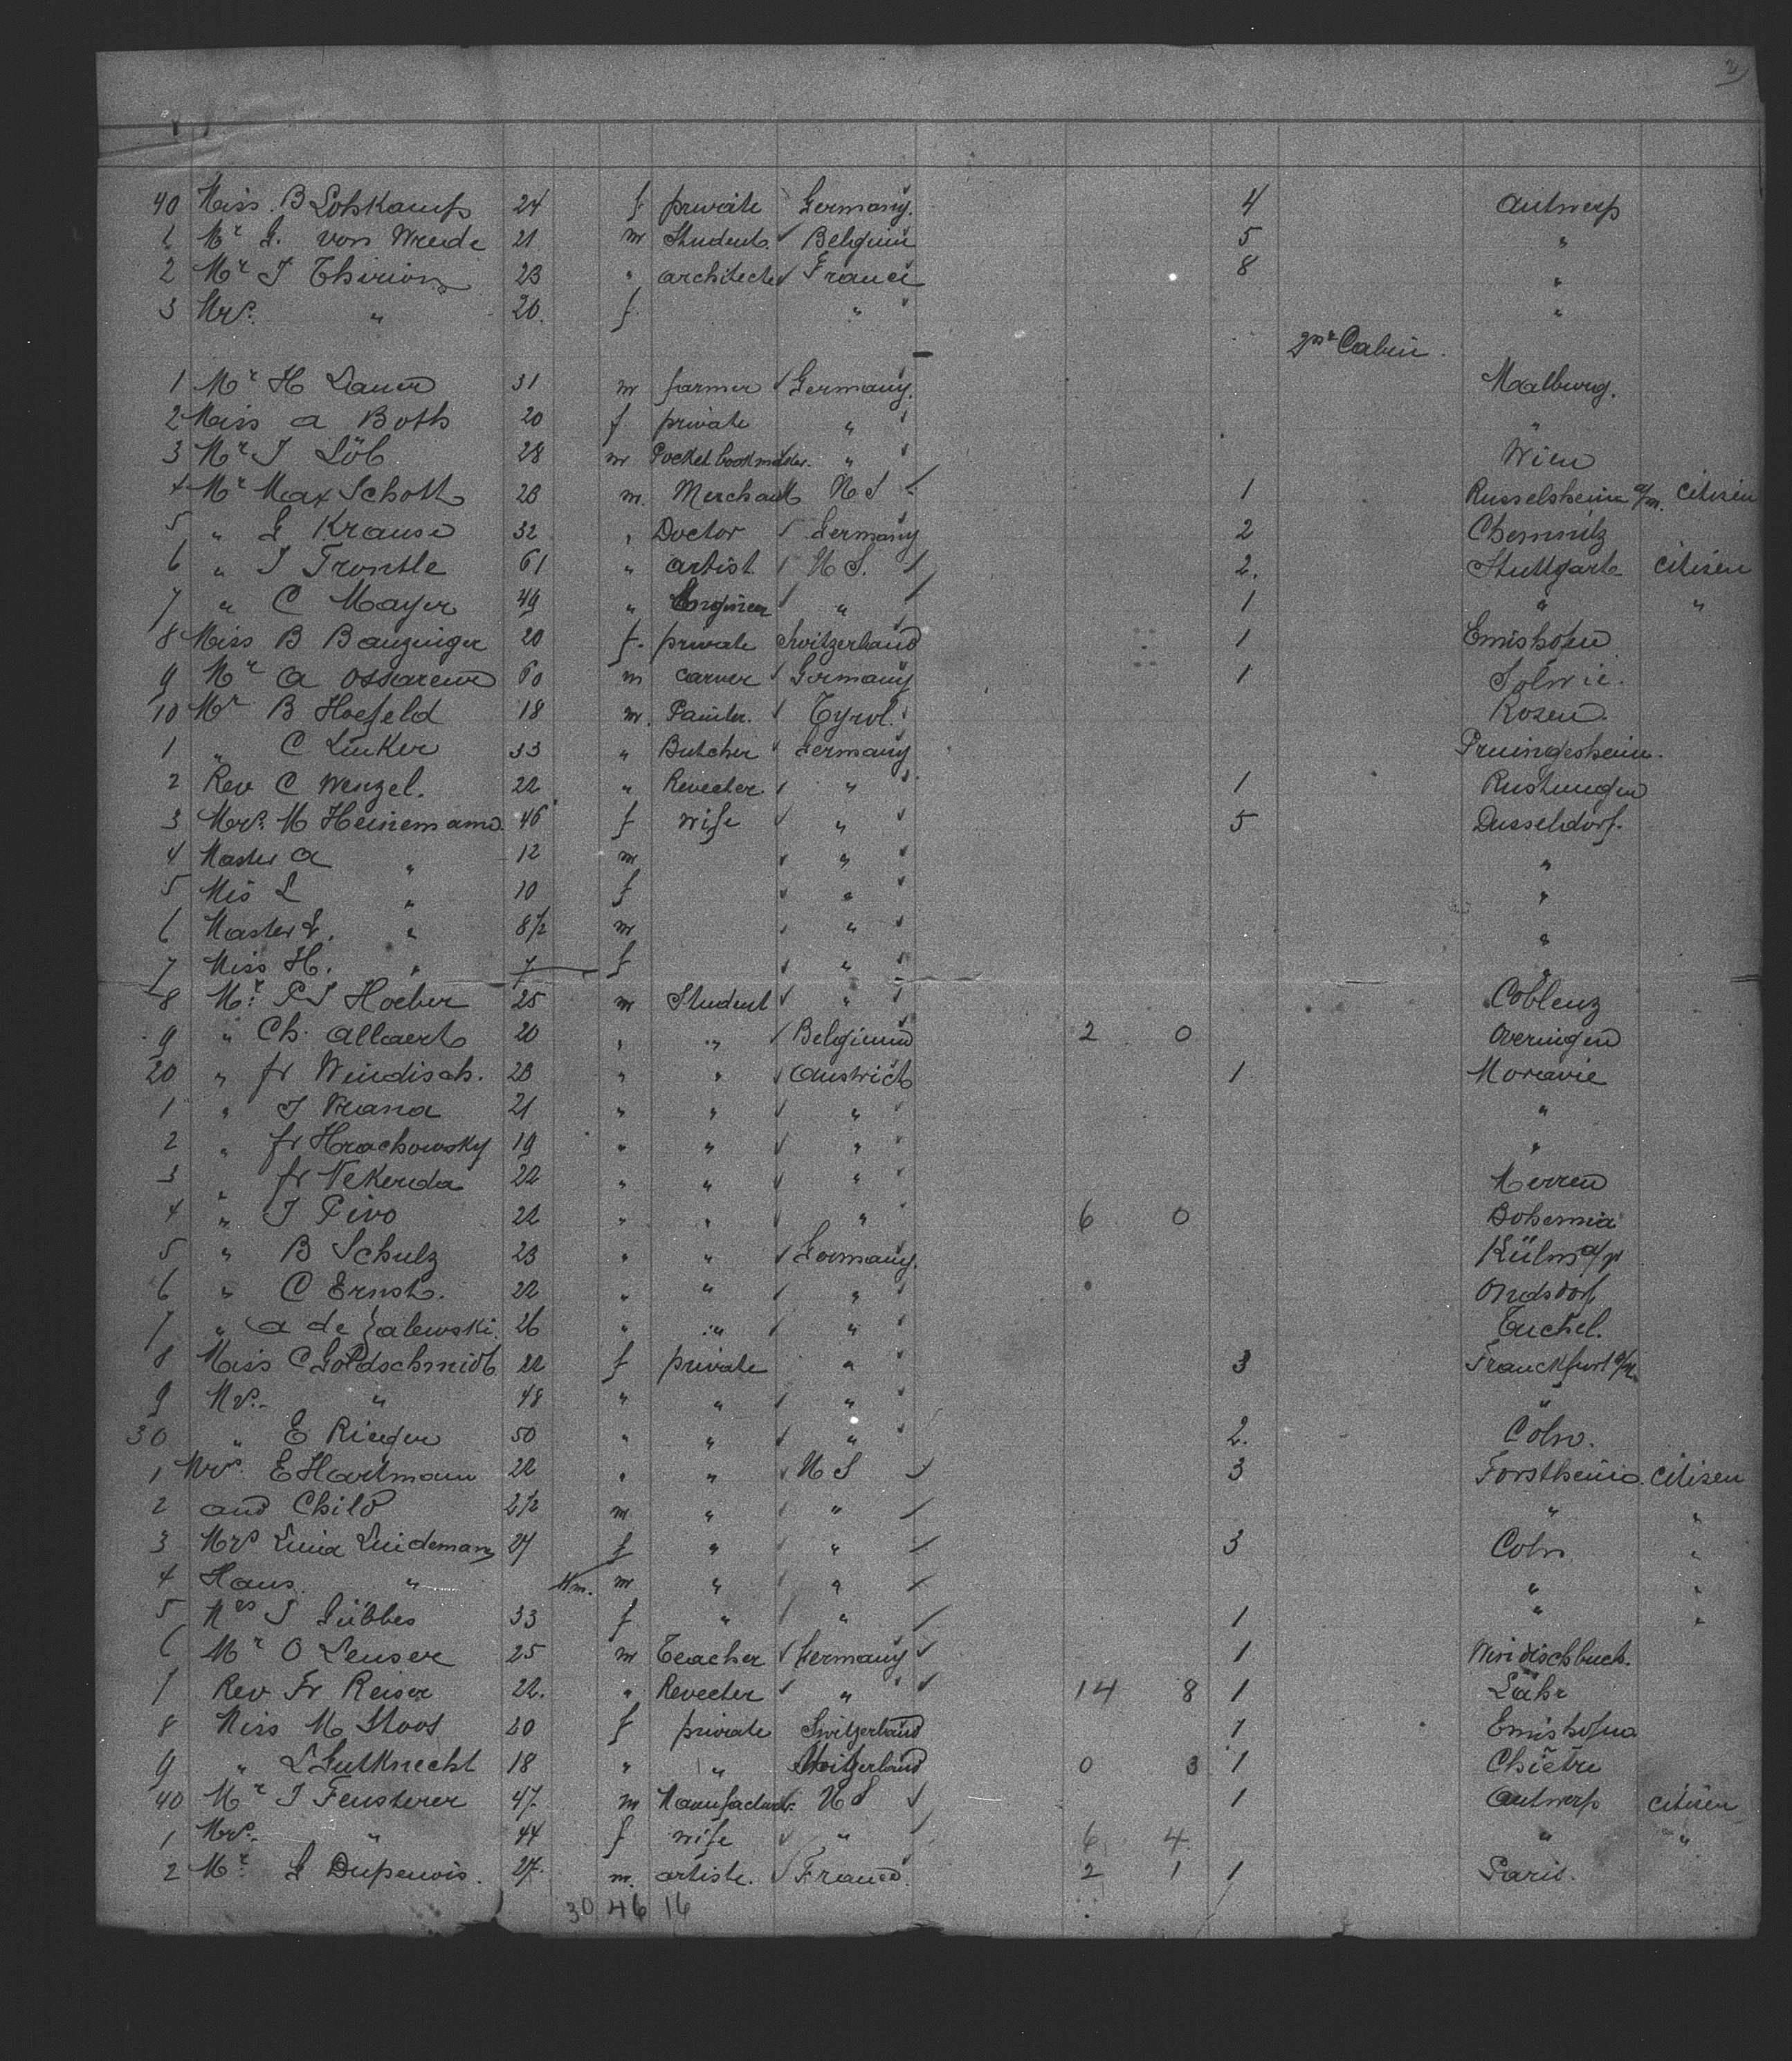 2
40 Miss B Lohkamp 24 f private Germany. 4 Antwerp
1 Mr G. von Wrede 21 m Student Belgium 5 "
2 Mr J Thirion 23 " architecte France 8 "
3 Mrs. " 20. f " "
2nd Cabin.
1 Mr H Lauer 31 m farmer Germany.
2 Miss A Both 20 f private " "
3 Mr J Löb 28 m Pocket bookmaker. " Wien
4 Mr Max Schott 23 m. Merchant U S 1 Russelsheim a/m. citisen
5 " G Krause 32 " Doctor Germany 2 Chemnitz
6 " J Trontle 61 " artist U S. 2. Stuttgart citisen
7 " C Mayer 49 " Engineer " 1 " "
8 Miss B Bauzinger 20 f. private Switzerland 1 Emishofen
9 Mr A 60 m carver Germany 1
10 Mr B Hoefeld 18 m. Painter. Tyrol. Kosen.
1 " C Linker 33 " Butcher Germany Pruingesheim.
2 Rev C Wenzel. 22 " Reveeter " 1 Rustungen
3 Mrs. M Heinemann. 46 f wife " 5 Dusseldorf.
4 Master A " 12 m " "
5 Mis L " 10 f " "
6 Master " 8 1/2 m " "
7 Miss H. " 7 f " "
8 Mr. P J Hoeber 25 m Student " Coblenz
9 " Ch. Allaert 20 " " Belgium 2 0 Overingen
20 " fr Windisch. 23 " " Austrich 1 Moravie
1 " J Vrana 21 " " " "
2 " fr Hrachowsky 19 " " " "
3 " fr Nekerda 22 " " "
4 " J Pivo 22 " " " 6 0 Bohemia
5 " B Schulz 23 " " Germany.
6 " C Ernst. 22 " " "
7 " A de Zalewski 26 " " " Tuchel.
8 Miss C Goldschmidt 22 f private " 3 Franckfurt a/M.
9 Mrs. " 48 " " " "
30 " E Rieger 50 " " " 2. Coln.
1 Mrs. E Hartmann 22 " " U S 3 Forstheim. citisen
2 and Child 2 1/2 m " " " "
3 Mrs Lina Lindeman 27 f " " 3 Coln "
4 Hans " 11m. m " " " "
5 Mrs J Gübbes 33 f " " 1 " "
6 Mr O Lenser 25 m Teacher Germany 1 Windischbuch.
7 Rev Fr Reiser 22. " Reveeter " 14 8 1 Lahr
8 Miss M Stoos 20 f private Switzerland 1 Emishofen
9 " L Gutknecht 18 " " Switzerland 0 3 1 Chiètre
40 Mr J Fensterer 47 m Manufacturer U S 1 Antwerp citisen
1 Mrs. " 44 f wife " 6 4 " "
2 Mr. G Dupenois. 27. m. artiste. France. 2 1 1 Paris.
30 46 16